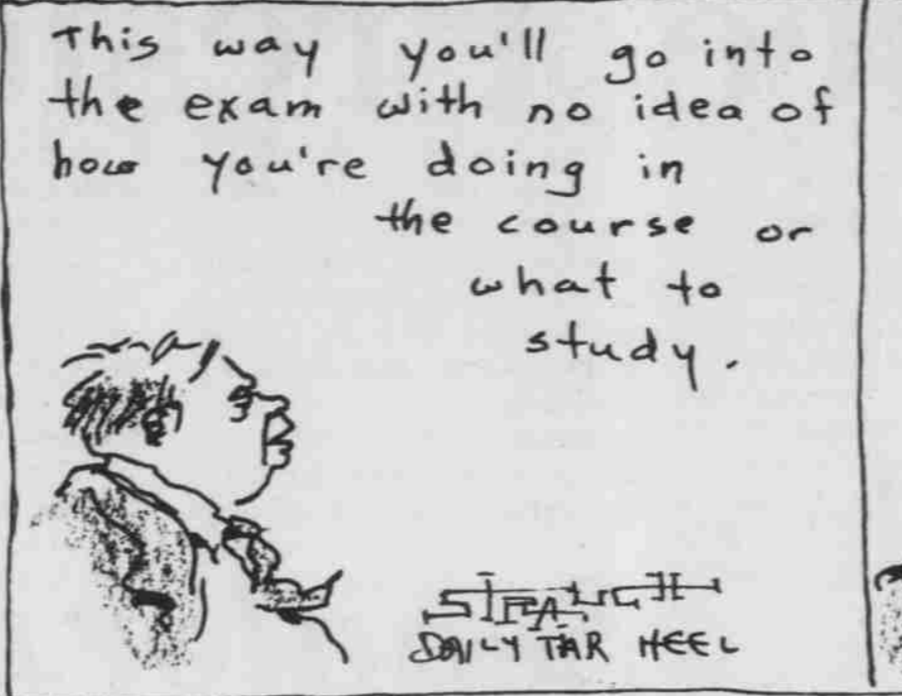 This way you'll go into
the exam with no idea of
how you're doing in
the course or
what to
study.
DAILY TAR HEEL